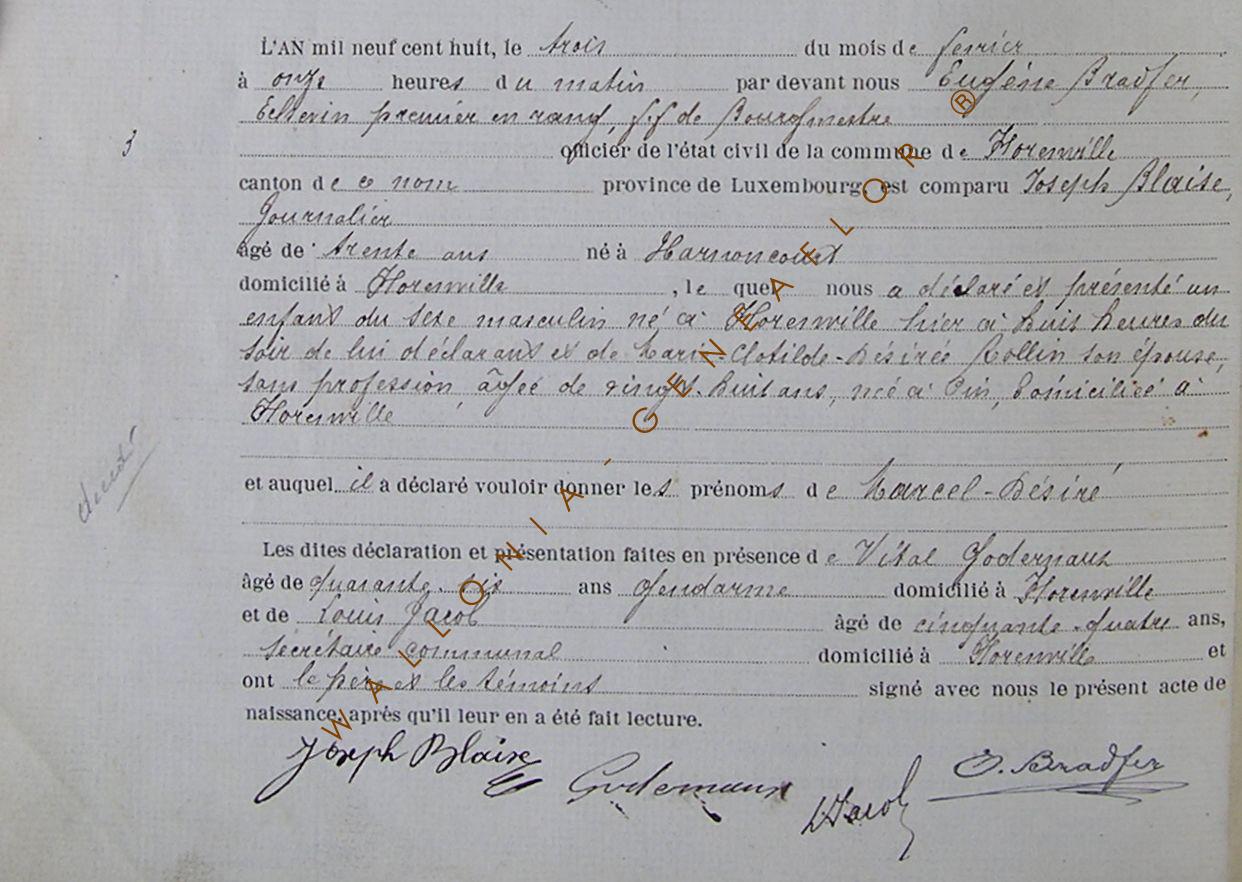 L'AN mil neuf cent huit, le trois du mois de fevrier
à onze heures du matin par devant nous Eugène Bradfer,
Echevin premier en rang, f.f de Bourgmestre
3 officier de l'état civil de la commune de Florenville
canton de ce nom province de Luxembourg, est comparu Joseph Blaise,
Journalier
âgé de trente ans né à Harnoncourt
domicilié à Florenville, le quel nous a déclaré et présenté un
enfant du sexe masculin né à Florenville hier à huit heures du
soir de lui déclarant et de Marie-Clotilde-Désirée Rollin son épouse,
sans profession, âgée de vingt-huit ans, née à Pin, domiciliée à
Florenville
et auquel il a déclaré vouloir donner les prénoms de Marcel-Désiré
Les dites déclaration et présentation faites en présence de Vital Godernaux
âgé de quarante-six ans gendarme domicilié à Florenville
et de Louis Jacob âgé de cinquante-quatre ans,
secrétaire communal domicilié à Florenville et
ont le père et les témoins signé avec nous le présent acte de
naissance, après qu'il leur en a été fait lecture.
Joseph Blaise Godernaux L Jacob E. Bradfer
WALLONIA-GENEAFLOR ®